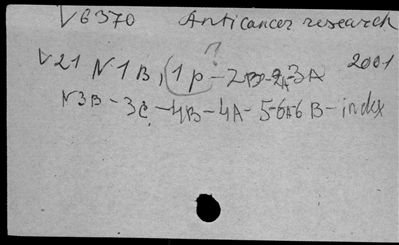 V6370 Anticancer research
V21 N1B, (1p-2B-2A-3A 2001
?
N3B-3C-4B-4A-5-6A-6B-index